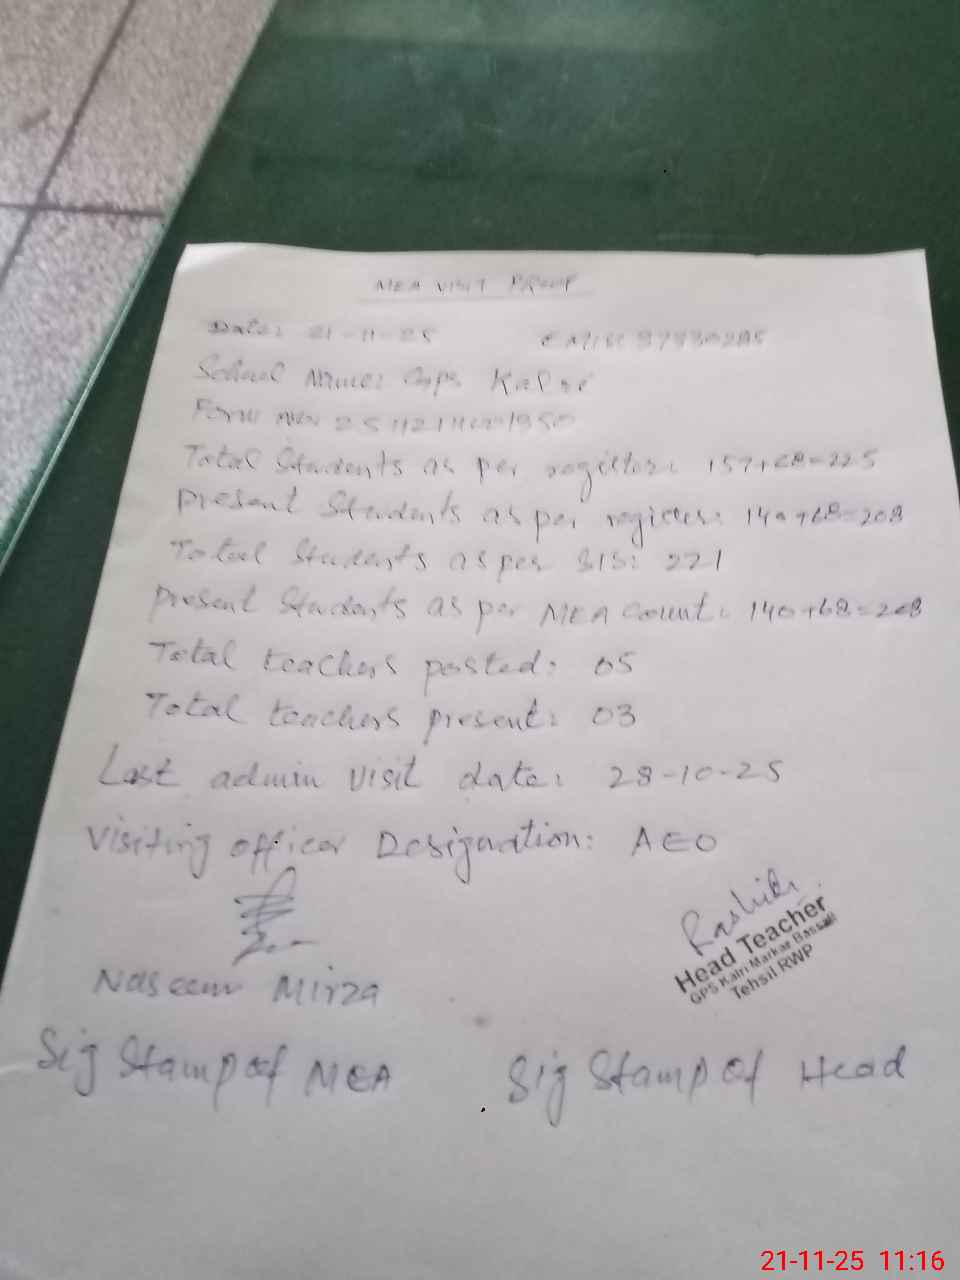 MEA VISIT PROOF
Date: 21-11-25 EMIS: 37330285
School Name: Gps Kalri
Form No:
Total Students as per register: 157+68=225
Present Students as per register: 140+68=208
Total Students as per SIS: 221
Present Students as per MEA count: 140+68=208
Total teachers posted: 05
Total teachers present: 03
Last admin visit date: 28-10-25
Visiting officer Designation: AEO
Rashid
Head Teacher
GPS Kalri Markaz Bassali
Tehsil RWP
Naseem Mirza
Sig Stamp of MEA Sig Stamp of Head
21-11-25 11:16